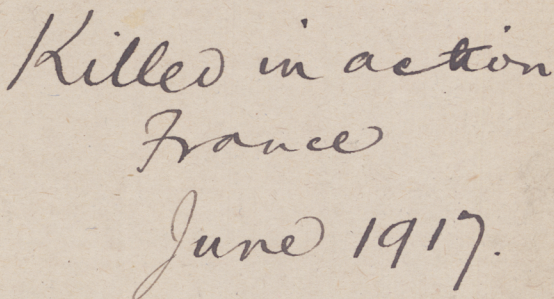 Killed in action
France
June 1917.